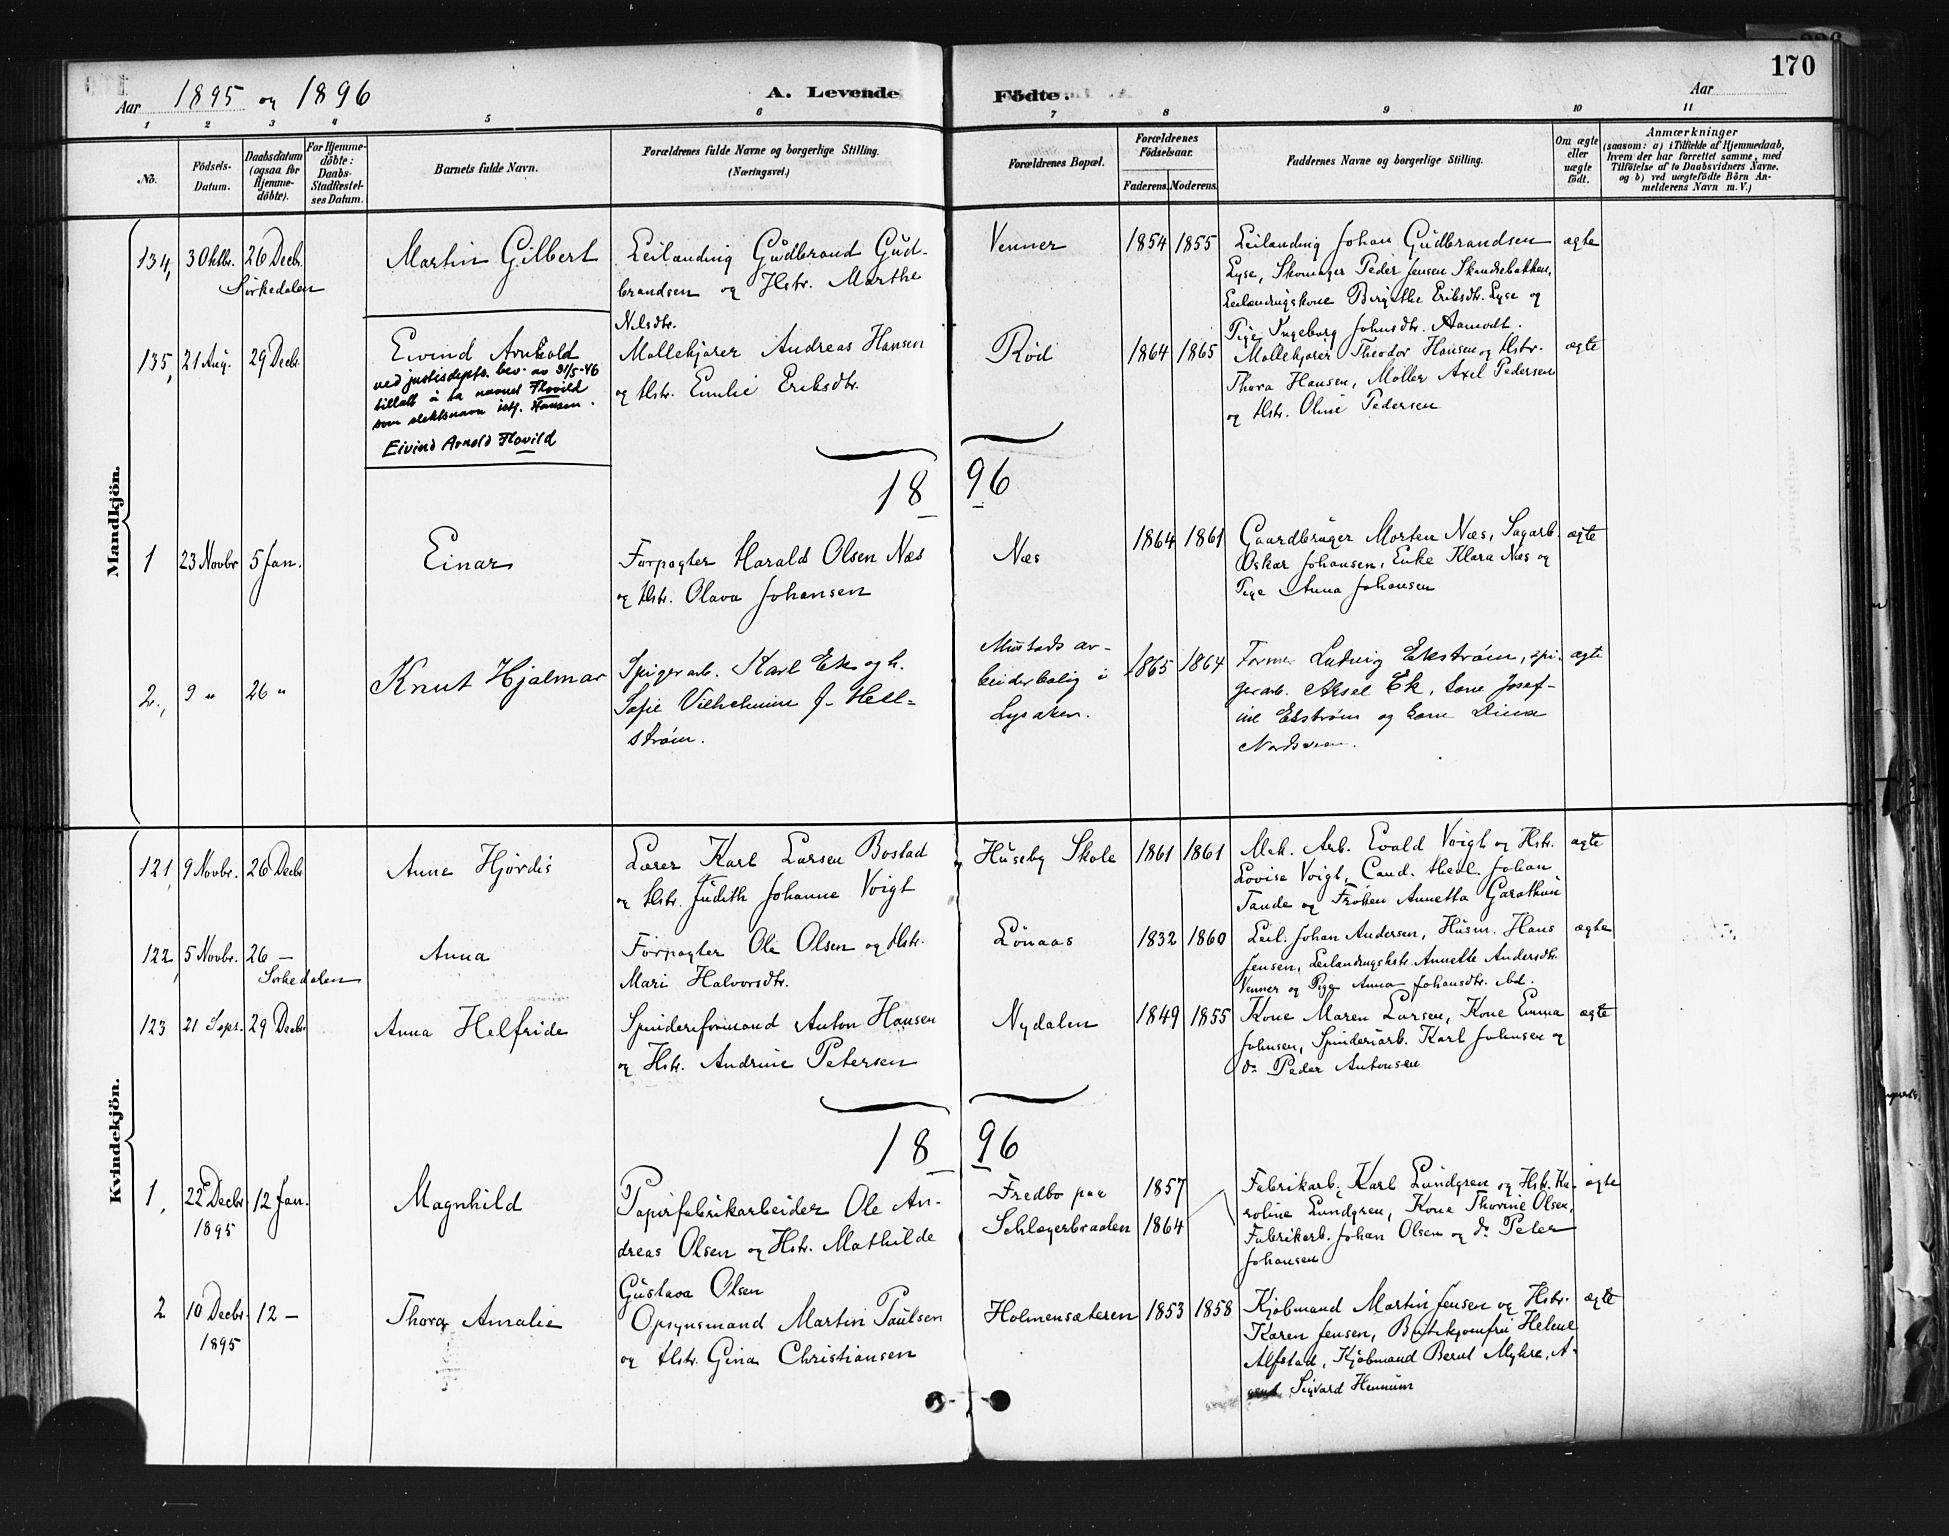 170
Aar 1895 og 1896
A. Levende Födte.
Aar
1 2 3 4 5 6 7 8 9 10 11
No.
Födsels-
Datum.
Daabsdatum
(ogsaa for
Hjemme-
döbte).
For Hjemme-
döbte:
Daabs-
Stadfæstel-
ses Datum.
Barnets fulde Navn.
Forældrenes fulde Navne og borgerlige Stilling.
(Næringsvei.)
Forældrenes Bopæl.
Forældrenes
Födselsaar.
Faderens. Moderens.
Faddernes Navne og borgerlige Stilling.
Om ægte
eller
uægte
födt.
Anmærkninger
(saasom: a) i Tilfælde af Hjemmedaab,
hvem der har forrettet samme, med
Tilföielse af to Daabsvidners Navne,
og b) ved uægtefödte Börn An-
melderens Navn m. V.)
Mandkjön.
134, 3 Oktbr. 26 Decbr.
Sörkedalen
Martin Gilbert
Leilænding Gudbrand Gud-
brandsen og Hstr. Marthe
Nilsdtr.
Venner
1854 1855
Leilænding Johan Gudbrandsen
Lyse, Skomager Peder Jensen Skandsebakken,
Leilændingskone Birgitte Eriksdtr. Lyse og
Pige Ingeborg Johnsdtr. Aamodt.
ægte
135, 21 Aug. 29 Decbr.
Eivind Arnhold
ved justisdepts. bev. av 31/5-46
tillatt å ta navnet Flovild
som slektsnavn istf. Hansen.
Eivind Arnold Flovild
Møllekjører Andreas Hansen
og Hstr. Emilie Eriksdtr.
Röd
1864 1865
Møllekjører Theodor Hansen og Hstr.
Thora Hansen, Møller Axel Pedersen
og Hstr. Oline Pedersen
ægte
18 96
1 23 Novbr. 5 Jan.
Einar
Forpagter Harald Olsen Næs
og Hstr. Olava Johansen
Næs
1864 1861
Gaardbruger Morten Næs, Sagarb.
Oskar Johansen, Enke Klara Næs og
Pige Anna Johansen
ægte
2., 9 " 26 "
Knut Hjalmar
Spigerarb. Karl Ek og h.
Sofie Vilhelmine J. Hell-
strøm.
Mustads ar-
beiderbolig i
Lysaker.
1865 1864
Former Ludvig Ekstrøm, spi-
gerarb. Aksel Ek, kone Josef-
ine Ekstrøm og kone Dina
ægte
Kvindekjön.
121, 9 Novbr. 26 Decbr.
Anne Hjørdis
Lærer Karl Larsen Bostad
og Hstr. Judith Johanne Voigt
Huseby Skole
1861 1861
Mek. Arb. Evald Voigt og Hstr.
Lovise Voigt, Cand. theol. Johan
Tande og Frøken Annetta Garathun
ægte
122, 5 Novbr. 26 —
Sørkedalen
Anna
Forpagter Ole Olsen og Hstr.
Mari Halvorsdtr.
Lönaas
1832 1860
Leil. Johan Andersen, Husm. Hans
Jensen, Leilændingshstr. Annette Andersdtr.
Venner og Pige Anna Johansdtr. ibd.
ægte
123 21 Sept. 29 Decbr
Anna Helfride
Spinderiformand Anton Hansen
og Hstr. Andrine Petersen
Nydalen
1849 1855
Kone Maren Larsen, Kone Emma
Johnsen, Spinderiarb. Karl Johnsen og
do Peder Antonsen
ægte
18 96
1, 22 Decbr. 12 Jan.
1895
Magnhild
Papirfabrikarbeider Ole An-
dreas Olsen og Hstr. Mathilde
Gustava Olsen
Fredbo paa
Schlægerbraaten
1857
1864
Fabrikarb. Karl Lundgren og Hstr. Ka-
roline Lundgren, Kone Thorine Olsen,
Fabrikarb. Johan Olsen og do Peter
Johansen
ægte
2 10 Decbr. 12 —
1895
Thora Amalie
Opsynsmand Martin Paulsen
og Hstr. Gina Christiansen
Holmensæteren
1853 1858
Kjøbmand Martin Jensen og Hstr.
Karen Jensen, Butikjomfru Helene
Alfstad, Kjøbmand Bernt Myhre, A-
gent Sigvard Hennum
ægte